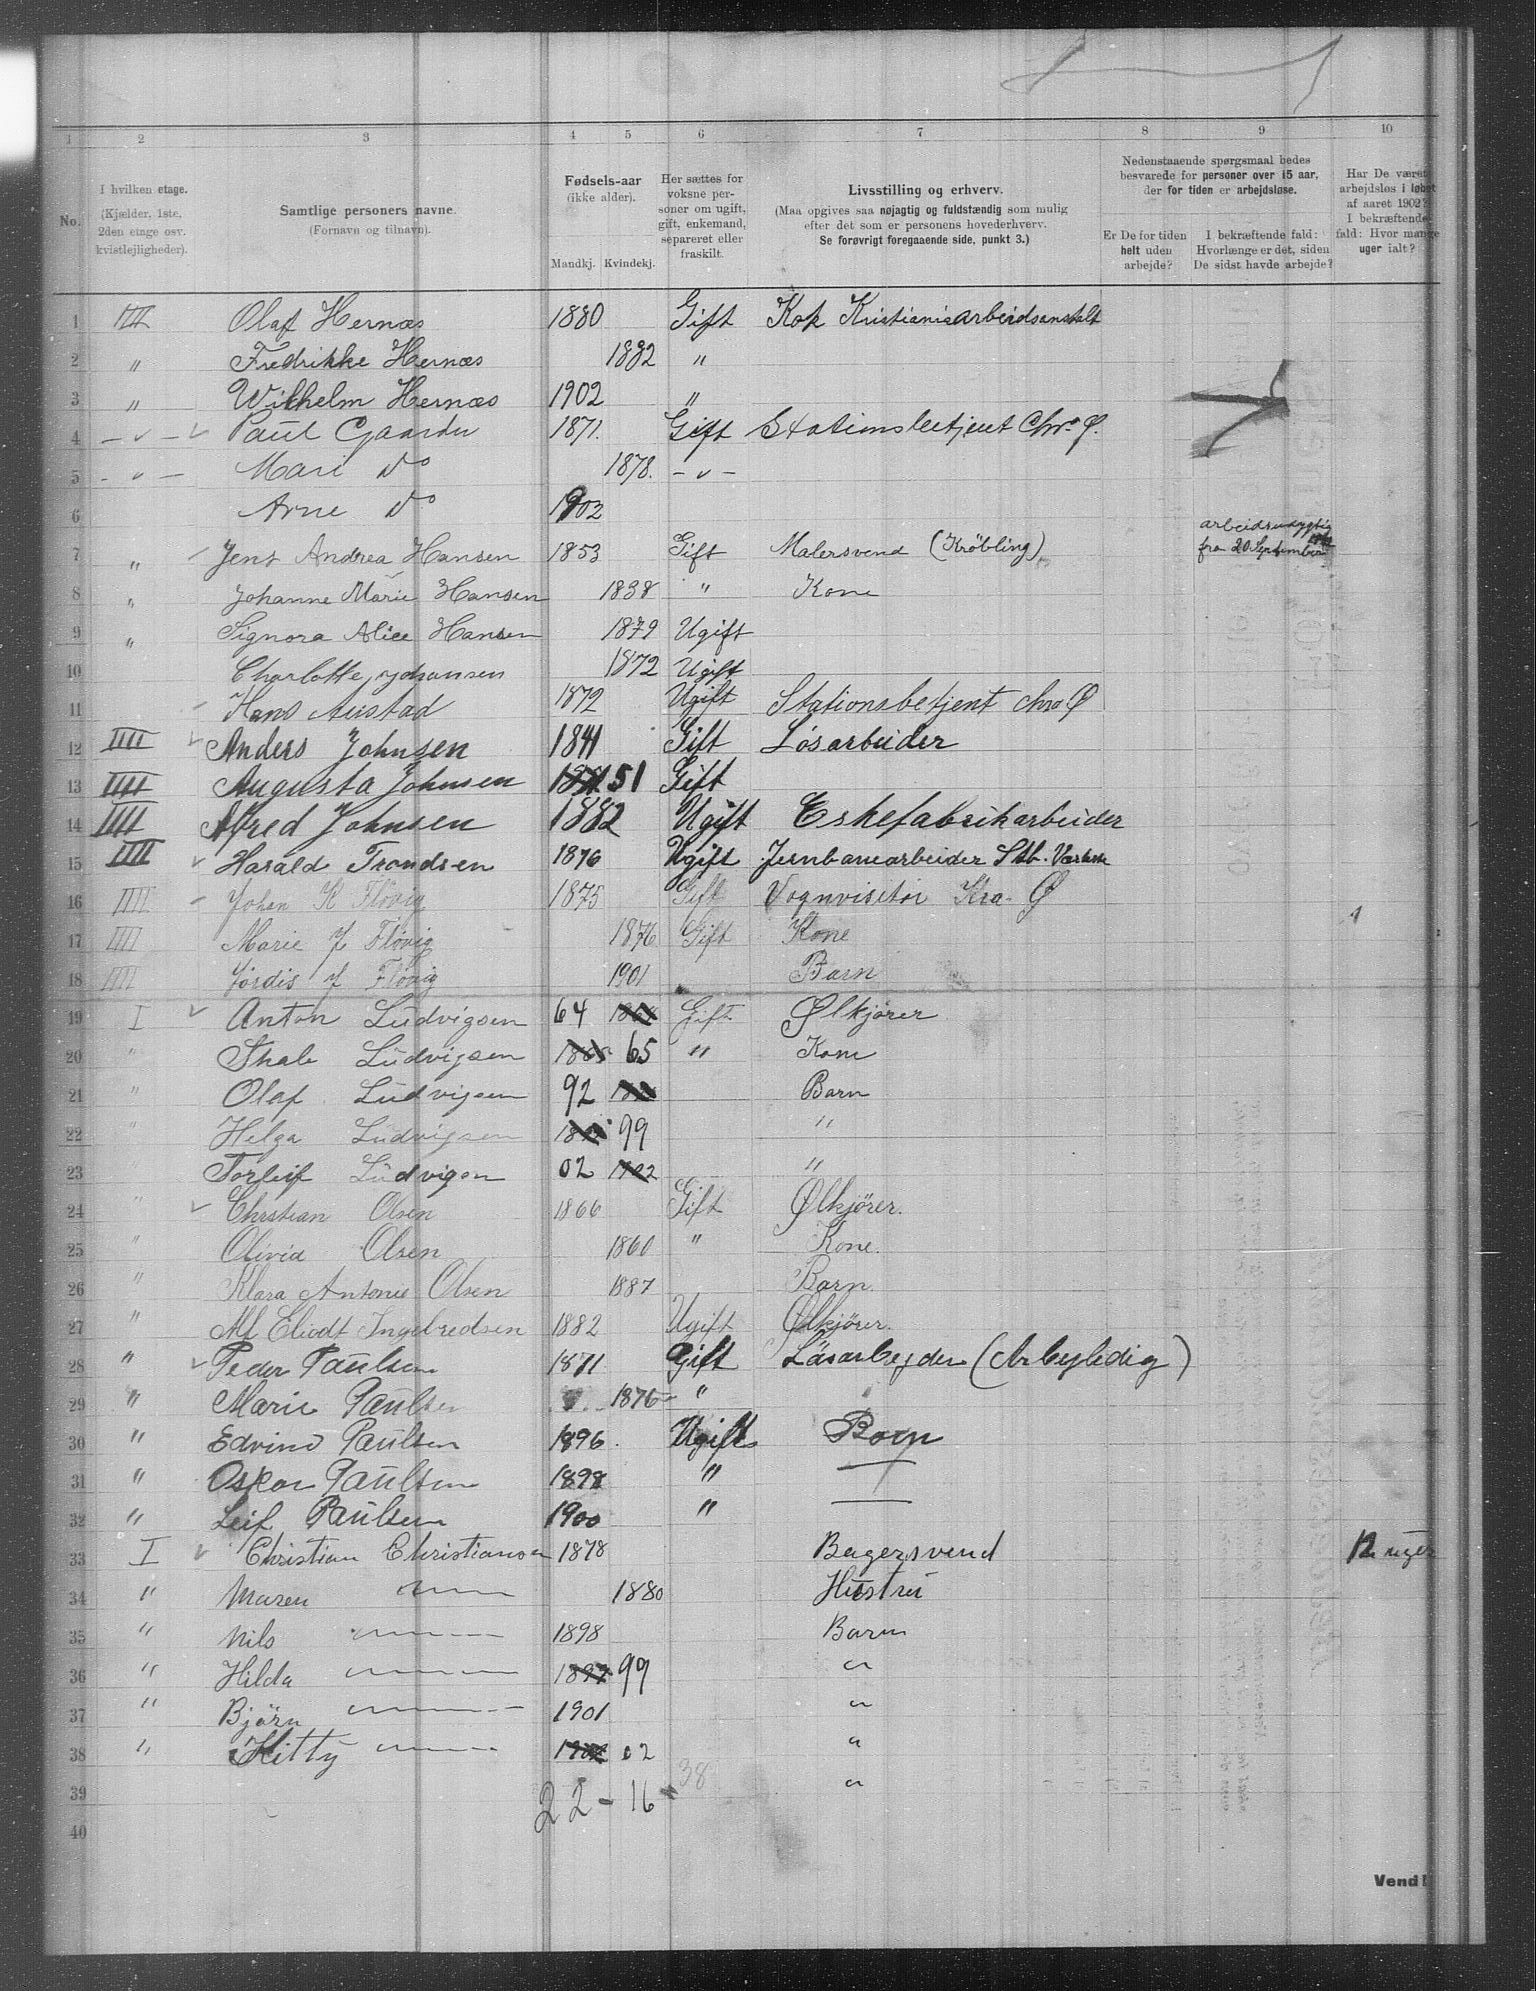 1 2 3 4 5 6 7 8 9 10
No.
I hvilken etage.
(Kjælder, 1ste, 2den etage osv. kvistlejligheder).
Samtlige personers navne.
(Fornavn og tilnavn).
Fødsels-aar
(ikke alder).
Mandkj. Kvindekj.
Her sættes for voksne personer om ugift, gift, enkemand, separeret eller fraskilt.
Livsstilling og erhverv.
(Maa opgives saa nøjagtig og fuldstændig som mulig
efter det som er personens hovederhverv.
Se forøvrigt foregaaende side, punkt 3.)
Nedenstaaende spørgsmaal bedes
besvarede for personer over 15 aar,
der for tiden er arbejdsløse.
Er De for tiden helt uden arbejde?
I bekræftende fald: Hvorlænge er det, siden De sidst havde arbejde?
Har De været arbejdsløs i løbet af aaret 1902? I bekræftende fald: Hvor mange uger ialt?
1 III Olaf Hernæs 1880 Gift Kok Kristianis arbeidsanstalt
2 " Fredrikke Hernæs 1882 "
3 " Wilhelm Hernæs 1902 "
4 - " - Paul Gaarder 1871. Gift Stationsbetjent Chr. Ø.
5 - " - Mari do 1878. - " -
6 Arne do 1902
7 " Jens Andrea Hansen 1853 Gift Malersvend (Kröbling) arbeidsudygtig fra 20 September
8 " Johanne Marie Hansen 1838 " Kone
9 " Signora Alice Hansen 1879 Ugift
10 Charlotte Johansen 1872 Ugift
11 Hans Austad 1872 Ugift Stationsbetjent Chra Ø
12 IIII Anders Johnsen 1841 Gift Løsarbeider
13 IIII Augusta Johnsen 51 Gift
14 IIII Alfred Johnsen 1882 Ugift Eskefabrikarbeider
15 IIII Harald Trondsen 1876 Ugift Jernbanearbeider Stb. Værkste
16 IIII Johan K Fløvig 1875 Gift Vognvisitør Kra. Ø
17 IIII Marie J Fløvig 1876 Gift Kone
18 IIII Jordis J Fløvig 1901 Barn
19 I Anton Ludvigsen 64 Gift Ølkjører
20 " Thale Ludvigsen 1865 65 " Kone
21 " Olaf Ludvigsen 92 Barn
22 " Helga Ludvigsen 99 "
23 " Torleif Ludvigsen 02 1902 "
24 " Christian Olsen 1866 Gift Ølkjører.
25 " Olivia Olsen 1860 " Kone.
26 " Klara Antonie Olsen 1887 Barn.
27 " Alf Eliodt Ingebredsen 1882 Ugift Ølkjører.
28 " Peder Paulsen 1871 Gift Løsarbejder (Arbejledig)
29 " Marie Paulsen 1876 "
30 " Edvind Paulsen 1896. Ugift Barn
31 " Oskar Paulsen 1898 " —
32 " Leif Paulsen 1900 " —
33 I Christian Christiansen 1878 Bagersvend 12 uger
34 " Maren — 1880 Hustru
35 " Nils — 1898 Barn
36 " Hilda — 1897 99 "
37 " Bjørn — 1901 "
38 " Kitty — 02 "
39 22 - 16 38 "
40
Vend!